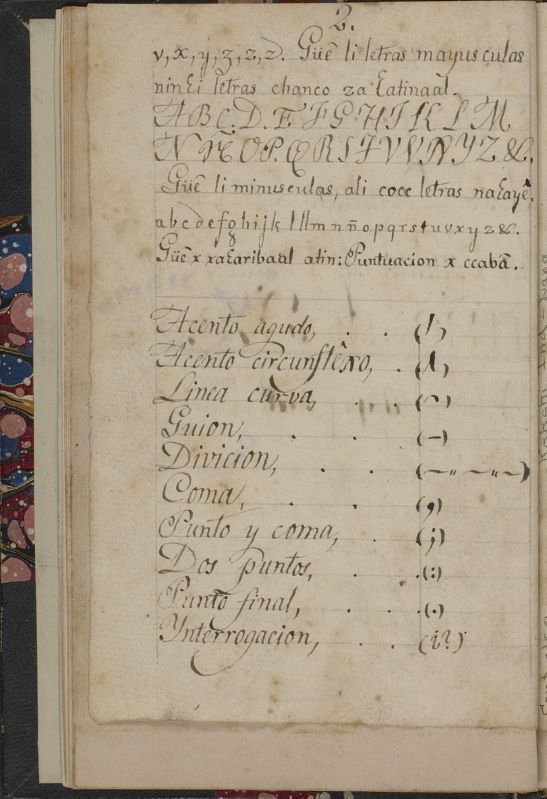 2.
v, x, y, z, z, z. Güẽ li letras mayusculas
ninƐi letras chanco za Ɛatinaal.
A B C. D. E F G H I K L M
N Ñ O P. Q R S T V U N Y Z &.
Güẽ li minusculas, ali coce letras naƐayê.
a b c d e f g h i j k l ll m n ñ o p q r s t u v x y z &.
Güẽ x xaƐaribaal atin: Puntuacion x ccabâ.
Acento agudo, . . (/)
Acento circunflêxo, . (^)
Linea curva, . . (⌢)
Guion, . . (—)
Divicion, . . (—„—„)
Coma, . . (,)
Punto y coma, . (;)
Dos puntos, . . (:)
Punto final, . . (.)
Ynterrogacion, . . (¿?)